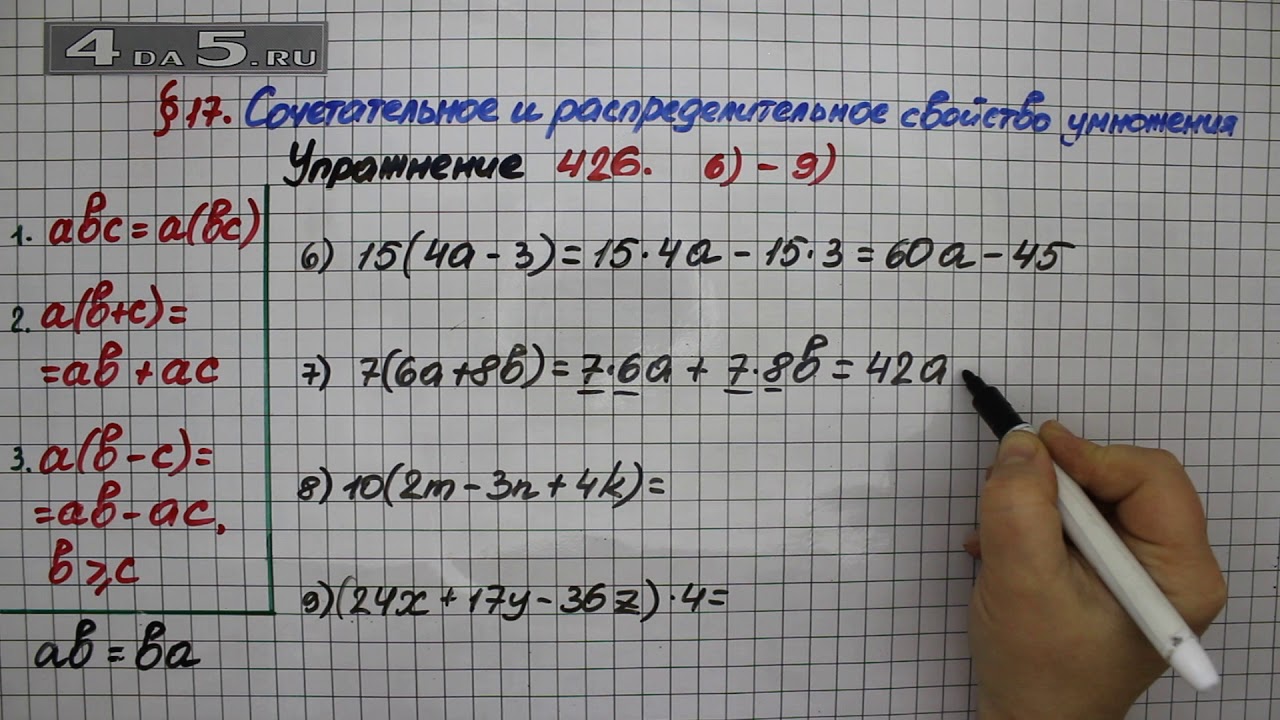 4DA5.RU
§ 17. Сочетательное и распределительное свойство умножения
Упражнение 426. 6) - 9)
1. abc = a(bc)
2. a(b+c)=
=ab + ac
3. a(b-c)=
=ab-ac,
b⩾c
ab = ba
6) 15(4a-3)=15·4a-15·3=60a-45
7) 7(6a+8b)=7·6a+7·8b=42a
8) 10(2m-3n+4k)=
9) (24x+17y-36z)·4=